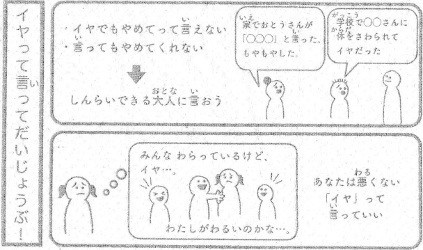 イヤって言ってだいじょうぶ！
・イヤでもやめてって言えない
・言ってもやめてくれない
しんらいできる大人に言おう
家でおとうさんが
「〇〇〇」と言った。
もやもやした。
学校で〇〇さんに
体をさわられて
イヤだった
みんな わらっているけど、
イヤ…。
わたしがわるいのかな…。
あなたは悪くない
「イヤ」って
言っていい